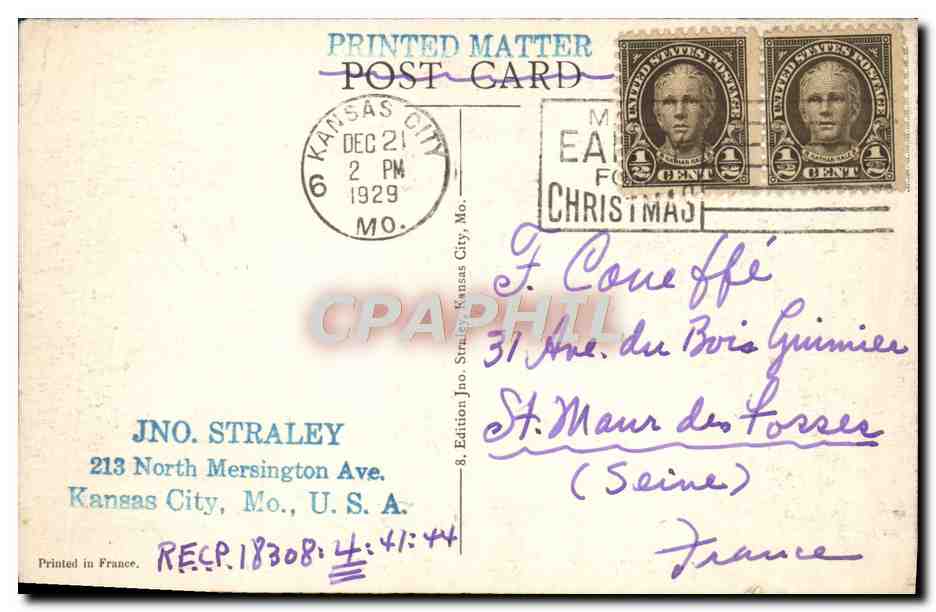 PRINTED MATTER
POST CARD
KANSAS CITY
DEC 21
2 PM
1929
MO.
6
EA
FO
CHRISTMAS
UNITED STATES POSTAGE
NATHAN HALE
1/2 CENT 1/2
UNITED STATES POSTAGE
NATHAN HALE
1/2 CENT 1/2
F. Coueffé
31 Ave. du Bois Guimier
St. Maur des Fosses
(Seine)
France
8. Edition Jno. Straley, Kansas City, Mo.
CPAPHIL
JNO. STRALEY
213 North Mersington Ave.
Kansas City, Mo., U. S. A.
RECP. 18308:4:41:44
Printed in France.